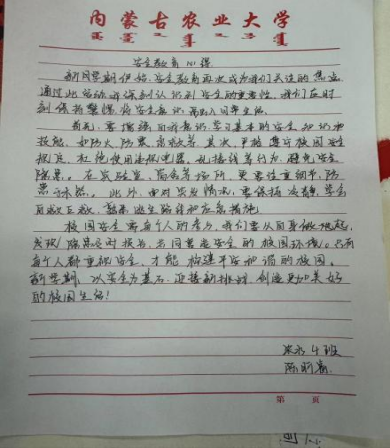 内蒙古农业大学
安全教育心得
新同学期伊始,安全教育再次成为我们关注的焦点
通过此活动我深刻认识到安全的重要性,我们应时
刻保持警惕,将安全意识 融入日常生活。
首先,要增强自我意识,学习基本的安全知识和
技能,如防火防震急救等。其次,严格遵守校园安全
规定,杜绝使用违规电器、乱接线等行为,避免安全
隐患。在实验室、宿舍等场所,更要注重细节,防
患于未然。此外,面对突发情况,要保持冷静,学会
自救互救,熟悉逃生路线和应急措施
校园安全需每个人的参与,我们要从自身做起,
发现隐患及时报告,共同营造安全的校园环境。只有
每个人都重视安全,才能构建平安和谐的校园。
新学期,以安全为基石,迎接新挑战,创造更加美好
的校园生活!
班
陈
第 页